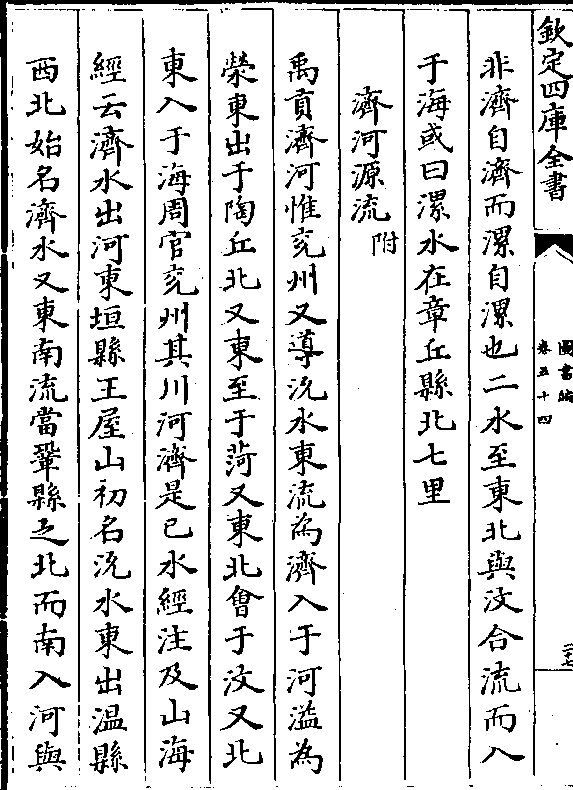 欽定四庫全書
圖書編
卷五十四
非濟自濟而漯自漯也二水至東北與汶合流而入
于海或曰漯水在章丘縣北七里
濟河源流附
禹貢濟河惟兖州又導沇水東流為濟入于河溢為
滎東出于陶丘北又東至于菏又東北會于汶又北
東入于海周官兖州其川河濟是已水經注及山海
經云濟水出河東垣縣王屋山初名沇水東出温縣
西北始名濟水又東南流當鞏縣之北而南入河與